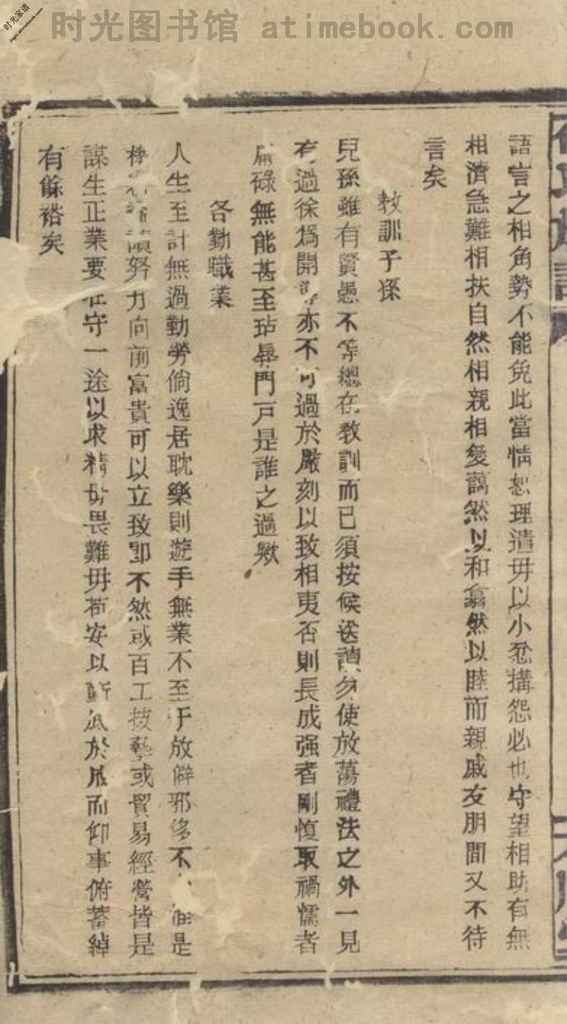 时光图书馆 atimebook.com
時光家谱
語言之相角勢不能免此當情恕理遣毋以小忿搆怨必也守望相助有無
相濟急難相扶自然相親相愛藹然以和翕然以睦而親戚友朋間又不待
言矣
教訓子孫
兒孫雖有賢愚不等總在教訓而已須按候送讀勿使放蕩禮法之外一見
有過徐為開導亦不可過於嚴刻以致相夷否則長成强者剛愎取禍懦者
庸碌無能甚至玷辱門戸是誰之過歟
各勤職業
人生至計無過勤勞倘逸居耽樂則遊手無業不至于放僻邪侈不是
讀努力向前富貴可以立致即不然或百工技藝或貿易經營皆是
謀生正業要在守一途以求精毋畏難毋苟安以至於成而仰事俯蓄綽
有餘裕矣
族譜